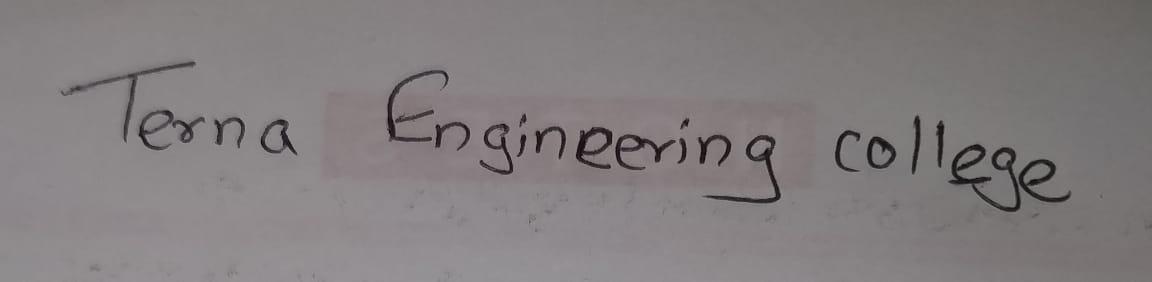 Terna Engineering college